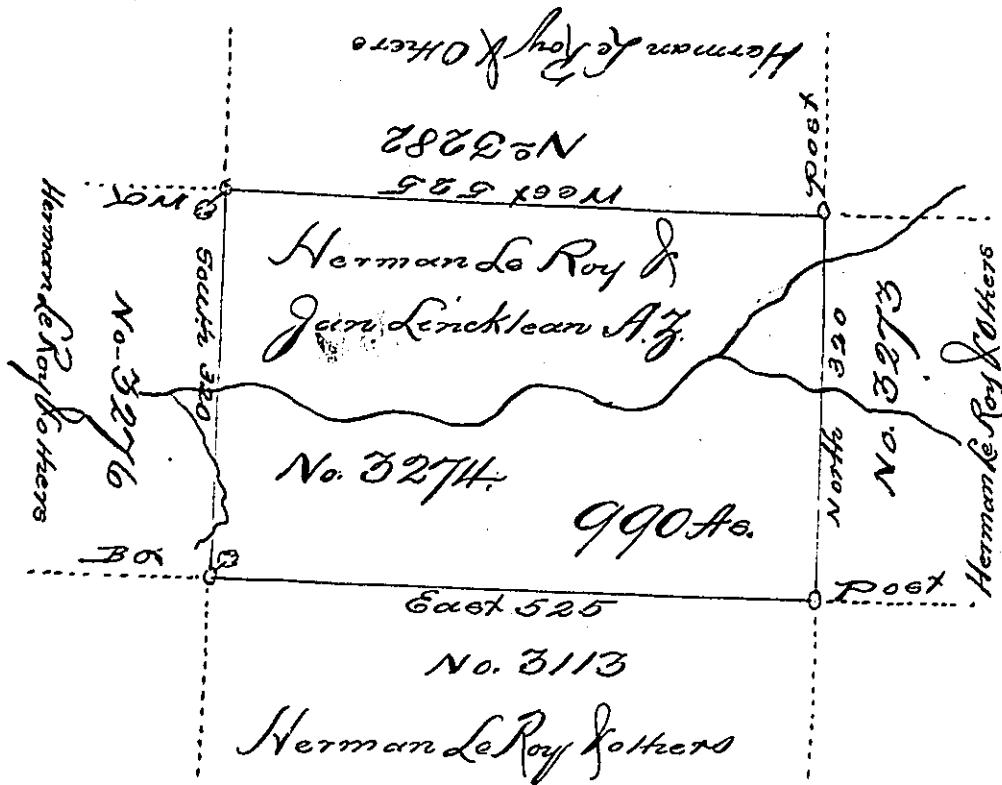 Herman Le Roy & Others
No 3282
West 525
Post
W O
South 320
No. 3276
Herman Le Roy & others
Herman Le Roy &
Jan Lincklean A.Z.
No. 3274.
990 Ac.
North 320
No. 3273
Herman Le Roy & Others
B O
Post
East 525
No. 3113
Herman Le Roy & others